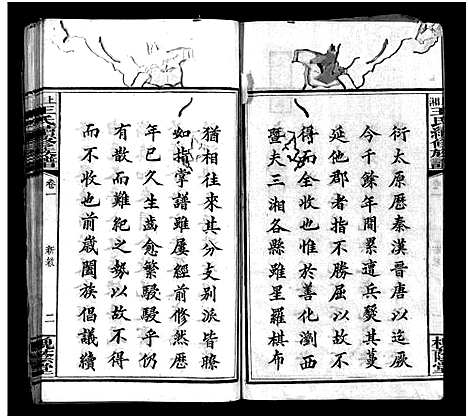 衍太原歷秦漢晉唐以迄厥
千餘年間累遭兵燹其蕃
延他郡者指不勝屈以故不
得而全收於善化瀏西
暨夫三湘各縣雖星羅棋布
猶相往來其分支别派皆瞭
如指掌譜雖屢經前修然歷
年已久生齒愈繁駸駸乎
有散而難紀之勢以故不
而不收也前歲闔族倡議續
王氏續修族譜
卷一
新敘
二
槐蔭堂